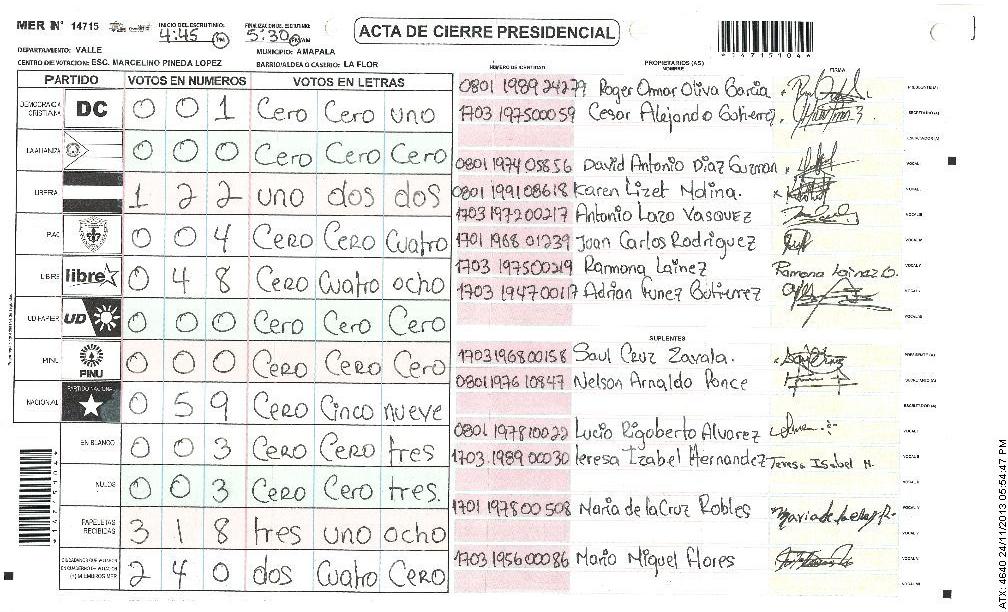 MER Nº 14715 INICIO DEL ESCRUTINIO: 4:45 PM FINALIZACION DEL ESCRUTINIO: 5:30 PM/AM
ACTA DE CIERRE PRESIDENCIAL
DEPARTAMENTO: VALLE MUNICIPIO: AMAPALA
CENTRO DE VOTACION: ESC. MARCELINO PINEDA LOPEZ BARRIO/ALDEA O CASERIO: LA FLOR
PARTIDO VOTOS EN NUMEROS VOTOS EN LETRAS
DEMOCRACIA CRISTIANA DC 0 0 1 Cero Cero uno
LA ALIANZA 0 0 0 Cero Cero Cero
LIBERAL 1 2 2 uno dos dos
PAC 0 0 4 Cero Cero Cuatro
LIBRE libre 0 4 8 Cero Cuatro ocho
UD FAPER UD 0 0 0 Cero Cero Cero
PINU PINU 0 0 0 Cero Cero Cero
NACIONAL PARTIDO NACIONAL 0 5 9 Cero Cinco nueve
EN BLANCO 0 0 3 Cero Cero tres
NULOS 0 0 3 Cero Cero tres.
PAPELETAS RECIBIDAS 3 1 8 tres uno ocho
2 4 0 dos Cuatro Cero
NUMERO DE IDENTIDAD PROPIETARIOS (AS) NOMBRE FIRMA
0801 1989 24279 Roger Omar Oliva Garcia PRESIDENTE (A)
1703 1975000 59 Cesar Alejandro Gutierrez SECRETARIO (A)
ESCRUTADOR (A)
0801 1974 05856 David Antonio Diaz Guzman VOCAL I
0801 1991 08618 Karen Lizet Molina. VOCAL II
1703 1972 00217 Antonio Lazo Vasquez VOCAL III
1701 1968 01239 Juan Carlos Rodriguez VOCAL IV
1703 1975 00219 Ramona Lainez Ramona Lainez O. VOCAL V
1703 1947 00117 Adrian Funez Gutierrez VOCAL VI
SUPLENTES
1703 1968 00158 Saul Cruz Zavala. PRESIDENTE (A)
0801 1976 10847 Nelson Arnaldo Ponce SECRETARIO (A)
ESCRUTADOR (A)
0801 1978 10022 Lucio Rigoberto Alvarez
1703 1989 00030 Teresa Izabel Hernandez Teresa Isabel H.
1701 1978 00 508 Maria de la Cruz Robles Maria de la Cruz R.
1703 1956 00086 Mario Miquel Flores
9471510 44
ATX: 4640 24/11/2013 05:54:47 PM